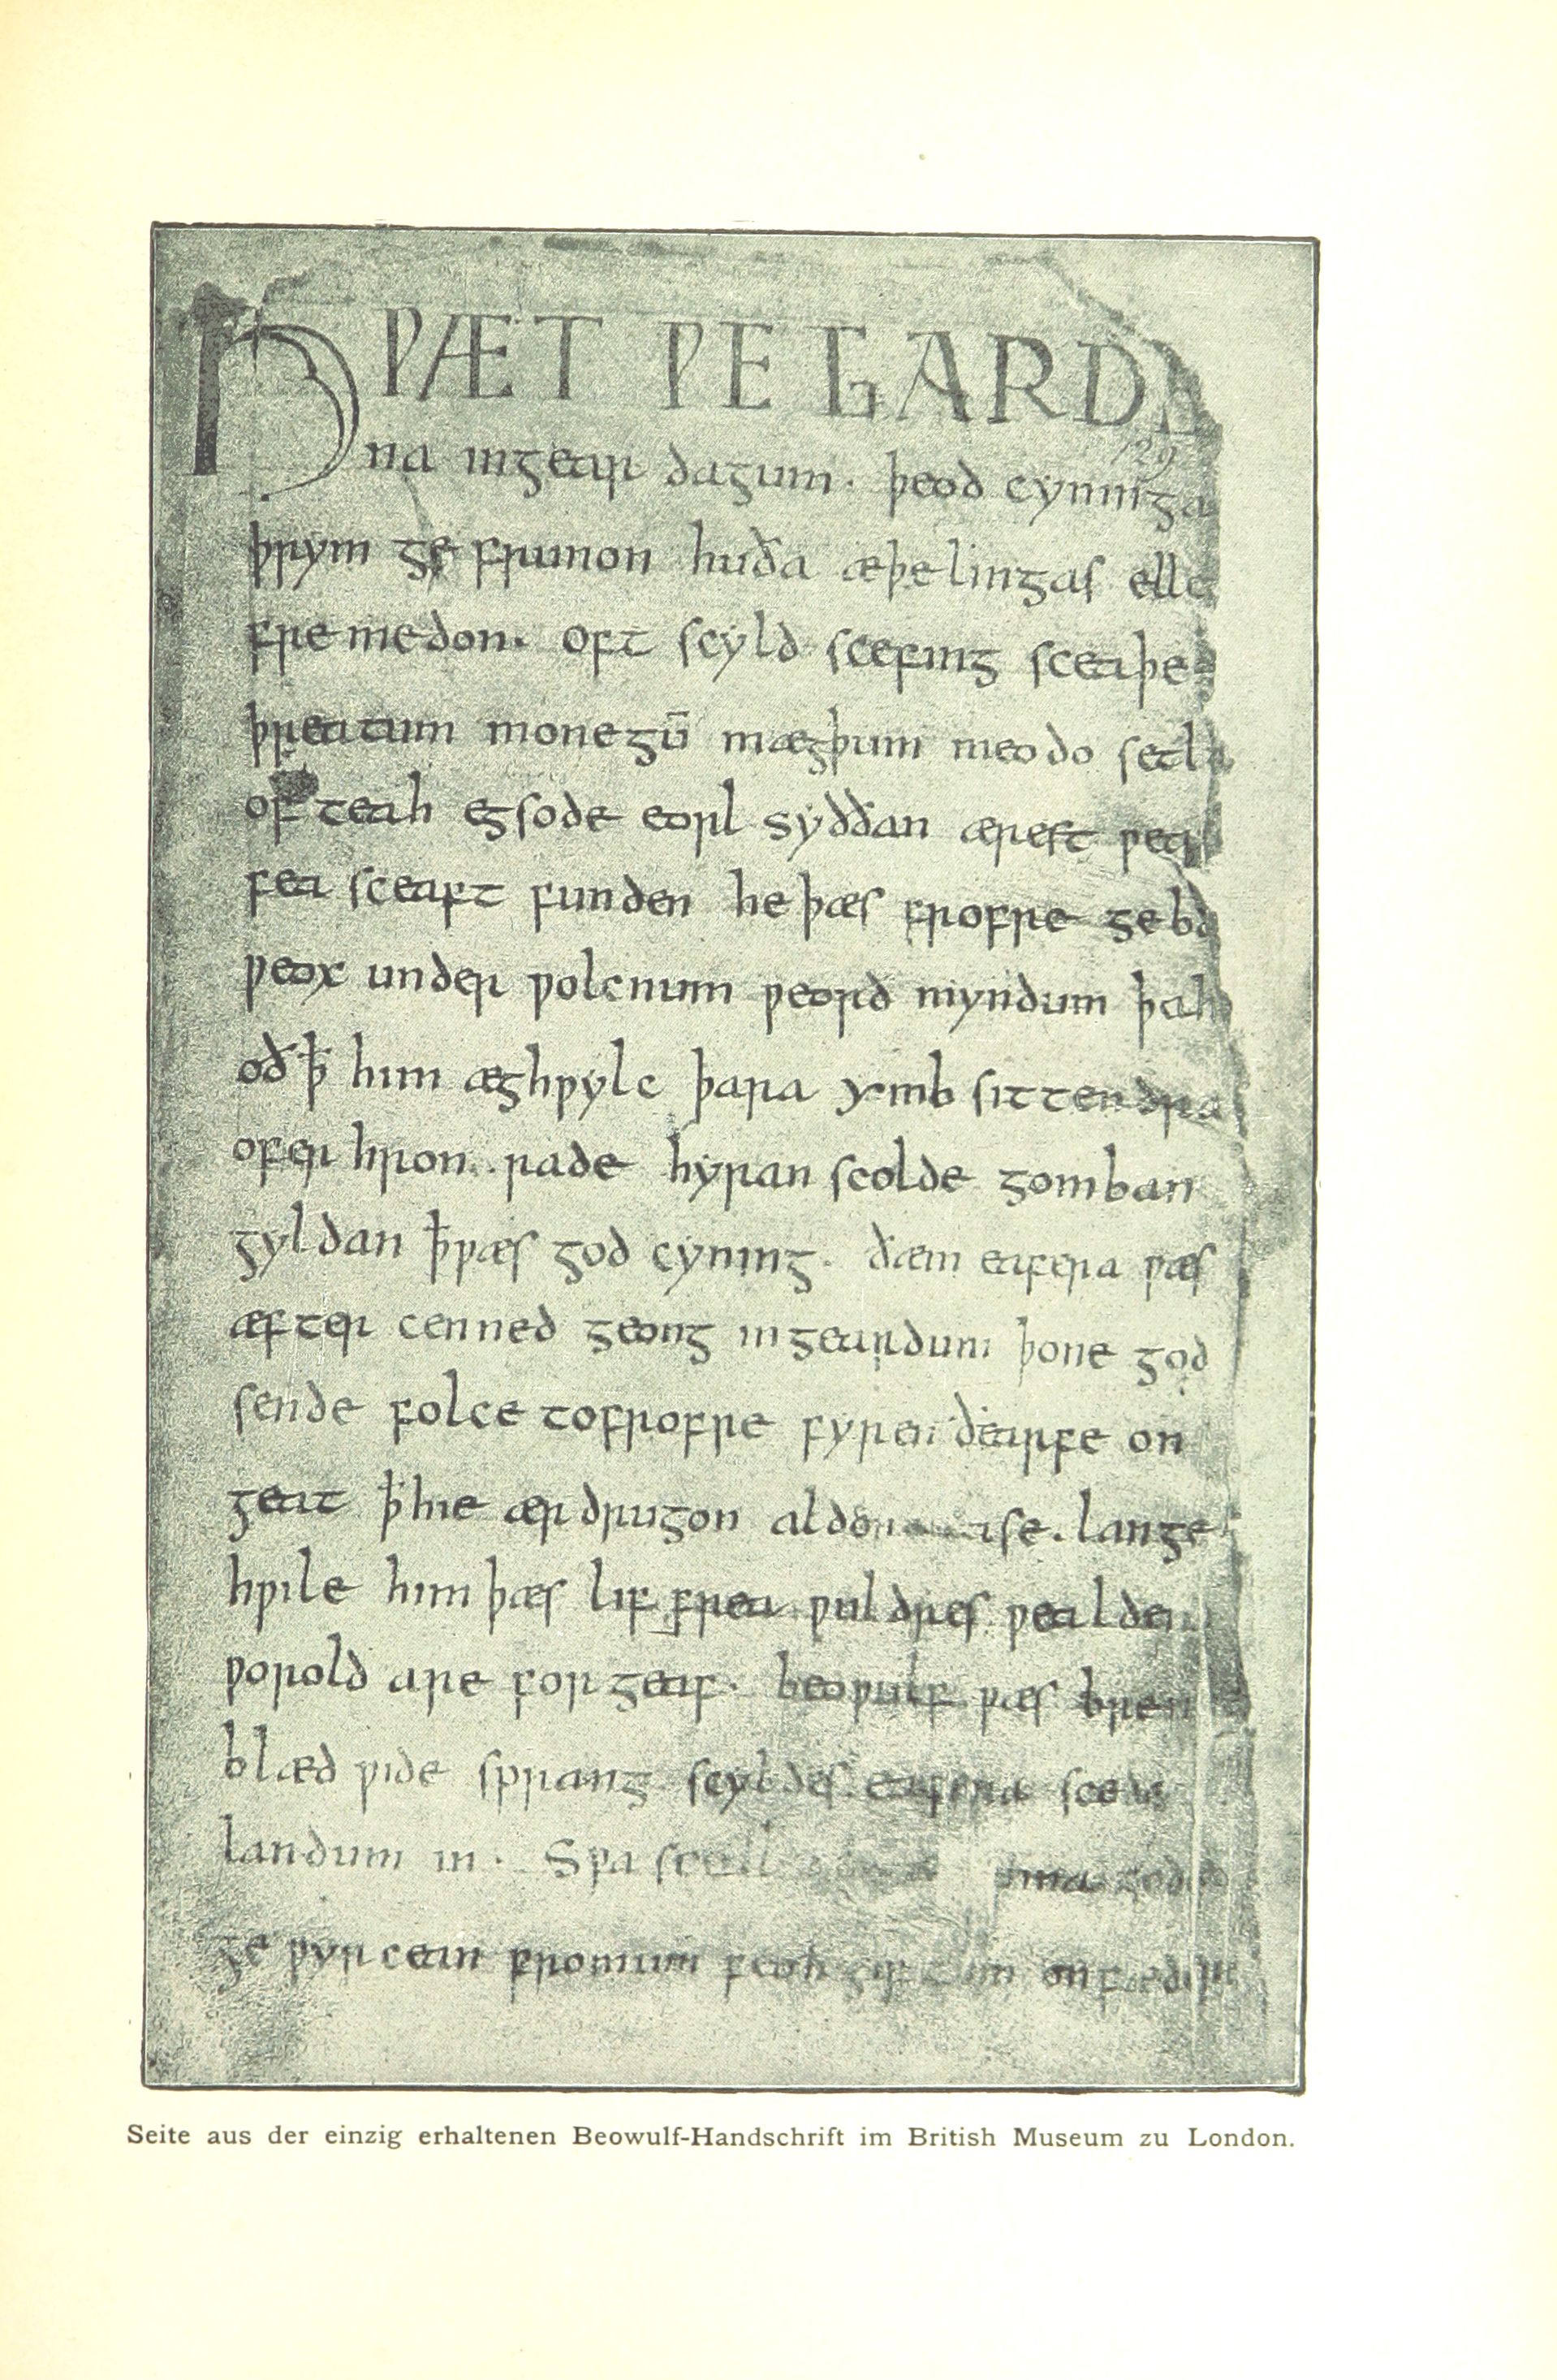 HǷÆT ǷE GARDE
129
na ingear dagum. þeod cyninga
þrym ge frunon huða æþelingas elle
fremedon. oft scyld scefing sceaþe
þreatum monegū mægþum meodo setla
of teah egsode eorl syððan ærest ƿear
fea sceaft funden he þæs frofre geba
ƿeox under ƿolcnum ƿeorð myndum þah
oð ꝥ him æghƿylc þara ymb sittendra
ofer hron rade hyran scolde gomban
gyldan ꝥ ƿæs god cyning. ðæm eafera ƿæs
æfter cenned geong ingeardum þone god
sende folce tofrofre fyren ðearfe on
geat ꝥ hie ær drugon aldor ase. lange
hƿile him þæs lif frea ƿuldres ƿealden
ƿorold are for geaf. beoƿulf ƿæs bren
blæd ƿide sprang scyldes eafera scede
landum in. Sƿa sceal
ge ƿyrcean fromum feoh giftum on fæder
Seite aus der einzig erhaltenen Beowulf-Handschrift im British Museum zu London.